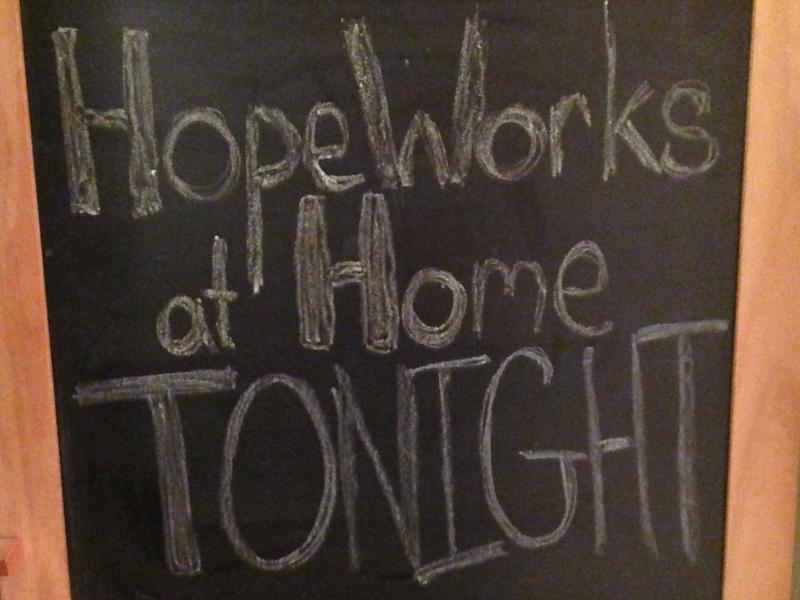 HopeWorks
at Home
TONIGHT